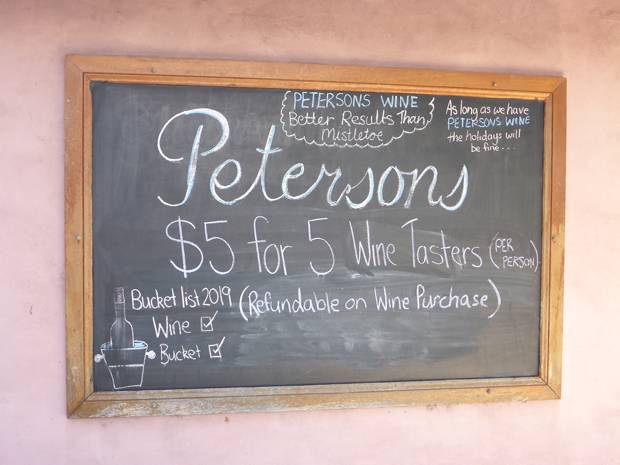 PETERSONS WINE
Better Results Than
Mistletoe
As long as we have
PETERSONS WINE
the holidays will
be fine...
Petersons
$5 for 5 Wine Tasters (PER
PERSON)
(Refundable on Wine Purchase)
Bucket list 2019
Wine ☑
Bucket ☑